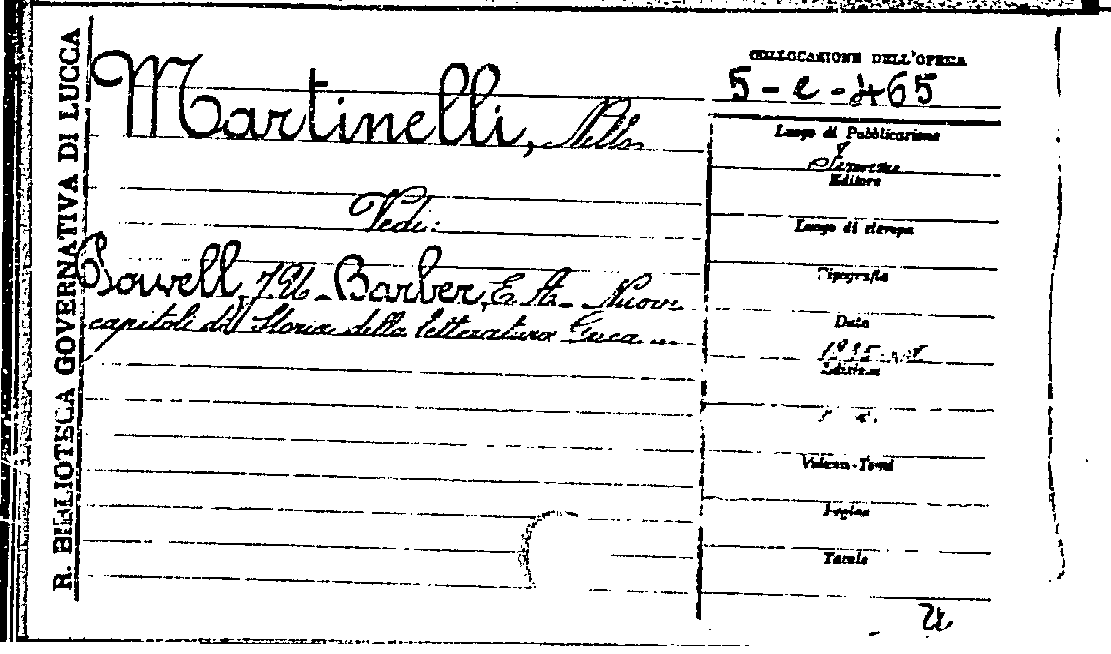 R. BIBLIOTECA GOVERNATIVA DI LUCCA
Martinelli, Nello
Vedi:
Powell, J. U. - Barber, E. A. - Nuovi
capitoli di Storia della letteratura Greca ...
COLLOCAZIONE DELL'OPERA
5-e-465
Luogo di Pubblicazione
Firenze
Editore
Luogo di stampa
Tipografia
Data
1935
Edizione
Volumi-Tomi
Pagine
Tavole